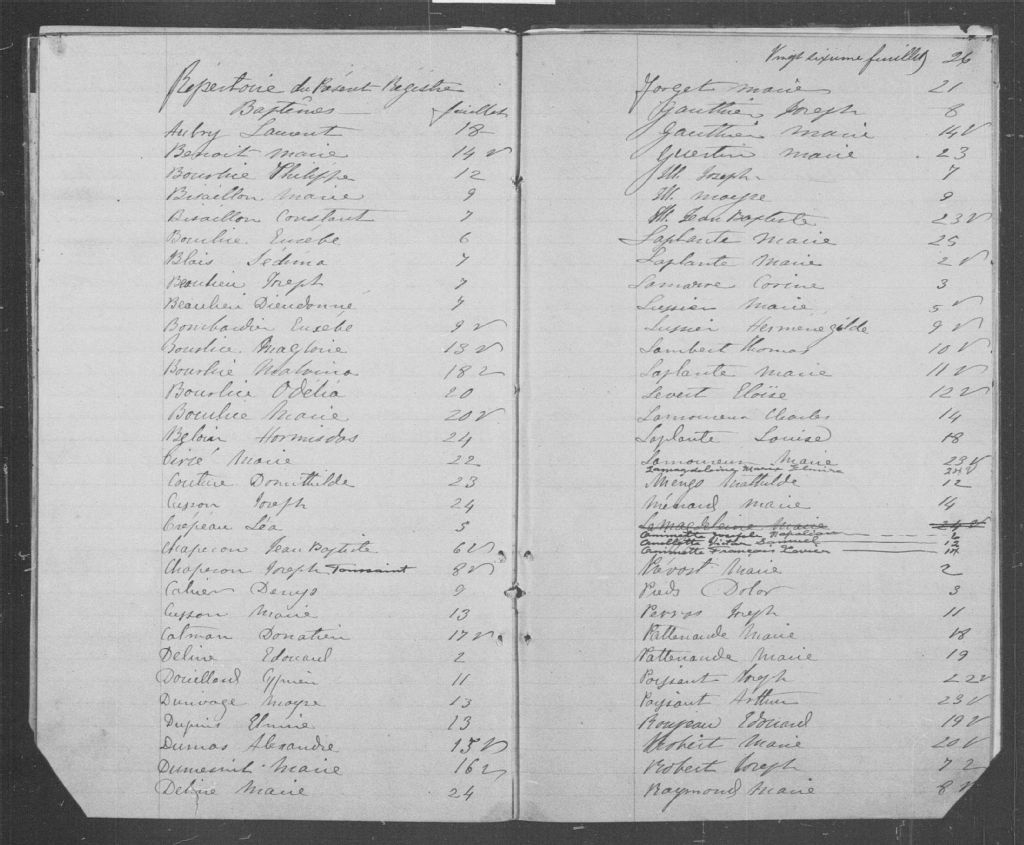 Répertoire du Présent Régistre
Baptêmes feuillet
Aubry Laurent 18
Benoit Marie 14 v
Bourbie Philippe 12
Bisaillon Marie 9
Bisaillon Constant 7
Eusebe 6
Blais Sedina 7
Beaulieu Joseph 7
Beaulieu Dieudonné 7
Bombardier Eusebe 9 v
Magloire 13 v
Malvina 18 v
Odélia 20
Marie 20 v
Hormisdas 24
Circé Marie 22
Couture Domithilde 23
Cusson Joseph 24
Crépeau Léa 5
Chaperon Jean Baptiste 6 v
Chaperon Joseph Toussaint 8 v
Cahier Denys 9
Cusson Marie 13
Catman Donatien 17 v
Deline Edouard 2
Douillard Cyprien 11
Moyse 13
Dupuis Elmire 13
Dumas Alexandre 15 v
Dumesnil Marie 16 v
Deline Marie 24
Vingt sixieme feuillet 26
Forget Marie 21
Gauthier Joseph 8
Gauthier Marie 14 v
Guertin Marie 23
Joseph 7
Moyse 9
Jean Baptiste 23 v
Laplante Marie 25
Laplante Marie 2 v
Lamarre Corine 3
Lussier Marie 5 v
Lussier Hermenegilde 9 v
Lambert Thomas 10 v
Laplante Marie 11 v
Levert Eloïse 12 v
Lamoureux Charles 14
Laplante Louise 18
Lamoureux Marie 23 v
Lamagdeleine Marie Elmira 24 v
Mengo Mathilde 12
Ménard Marie 14
Lamagdeleine Marie 24 v
Joseph Napoléon 6
Victor 12
François Xavier 14
Prévost Marie 2
Pieds Dolor 3
Perras Joseph 11
Pattenaude Marie 18
Pattenaude Marie 19
Poissant Joseph 22 v
Poissant Arthur 23 v
Edouard 19 v
Robert Marie 20 v
Robert Joseph 7 v
Raymond Marie 8 v